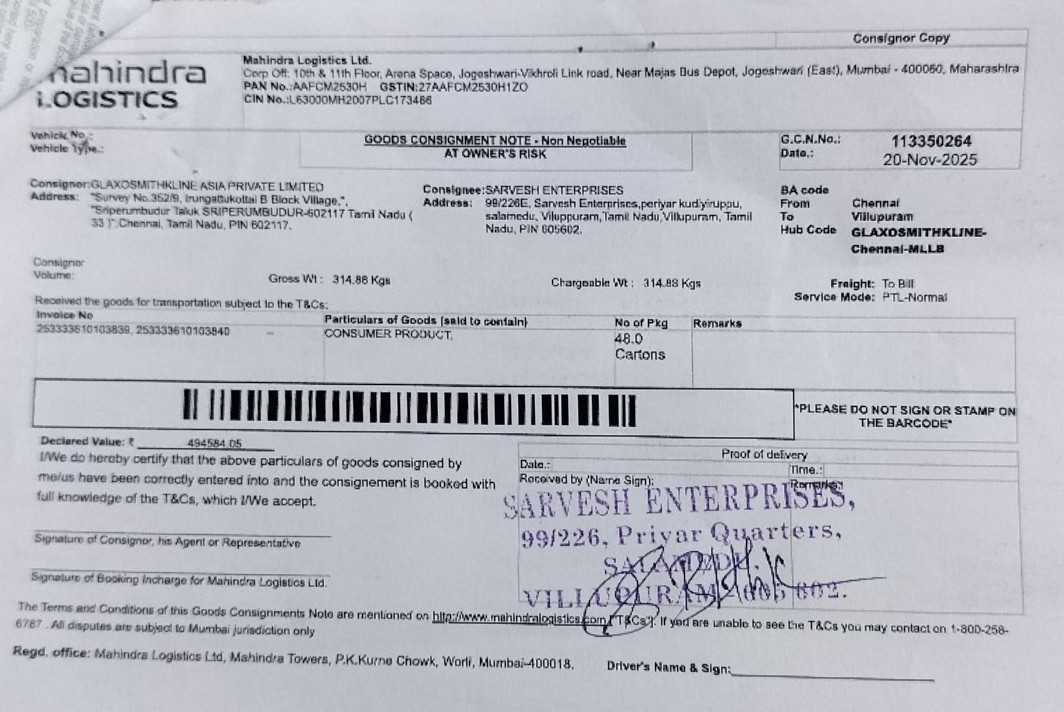 Consignor Copy
mahindra
LOGISTICS
Mahindra Logistics Ltd.
Corp Off: 10th & 11th Floor, Arena Space, Jogeshwari-Vikhroli Link road, Near Majas Bus Depot, Jogeshwari (East), Mumbai - 400060, Maharashtra
PAN No.:AAFCM2530H GSTIN:27AAFCM2530H1ZO
CIN No.:L63000MH2007PLC173466
Vehicle No.:
Vehicle Type.:
GOODS CONSIGNMENT NOTE - Non Negotiable
AT OWNER'S RISK
G.C.N.No.: 113350264
Date.: 20-Nov-2025
Consigner:GLAXOSMITHKLINE ASIA PRIVATE LIMITED
Address: "Survey No.352/9, Irungattukottai B Block Village,",
"Sriperumbudur Taluk SRIPERUMBUDUR-602117 Tamil Nadu (
33 )",Chennai, Tamil Nadu, PIN 602117.
Consignee:SARVESH ENTERPRISES
Address: 99/226E, Sarvesh Enterprises,periyar kudiyiruppu,
salamedu, Viluppuram,Tamil Nadu,Villupuram, Tamil
Nadu, PIN 605602.
BA code
From Chennai
To Villupuram
Hub Code GLAXOSMITHKLINE-
Chennai-MLLB
Consignor
Volume:
Gross Wt : 314.88 Kgs
Chargeable Wt : 314.88 Kgs
Freight: To Bill
Service Mode: PTL-Normal
Received the goods for transportation subject to the T&Cs:
Invoice No
Particulars of Goods (said to contain)
No of Pkg
Remarks
253333610103839, 253333610103840
CONSUMER PRODUCT,
48.0
Cartons
*PLEASE DO NOT SIGN OR STAMP ON
THE BARCODE*
Declared Value: ₹ 494584.05
I/We do hereby certify that the above particulars of goods consigned by
me/us have been correctly entered into and the consignement is booked with
full knowledge of the T&Cs, which I/We accept.
Proof of delivery
Date.:
Time.:
Received by (Name Sign):
Remarks:
SARVESH ENTERPRISES,
99/226, Priyar Quarters,
SALAMEDU,
VILLUPURAM - 605 602.
Signature of Consignor, his Agent or Representative
Signature of Booking Incharge for Mahindra Logistics Ltd.
The Terms and Conditions of this Goods Consignments Note are mentioned on http://www.mahindralogistics.com ["T&Cs"]. If you are unable to see the T&Cs you may contact on 1-800-258-
6787 . All disputes are subject to Mumbai jurisdiction only
Regd. office: Mahindra Logistics Ltd, Mahindra Towers, P.K.Kurne Chowk, Worli, Mumbai-400018.
Driver's Name & Sign: